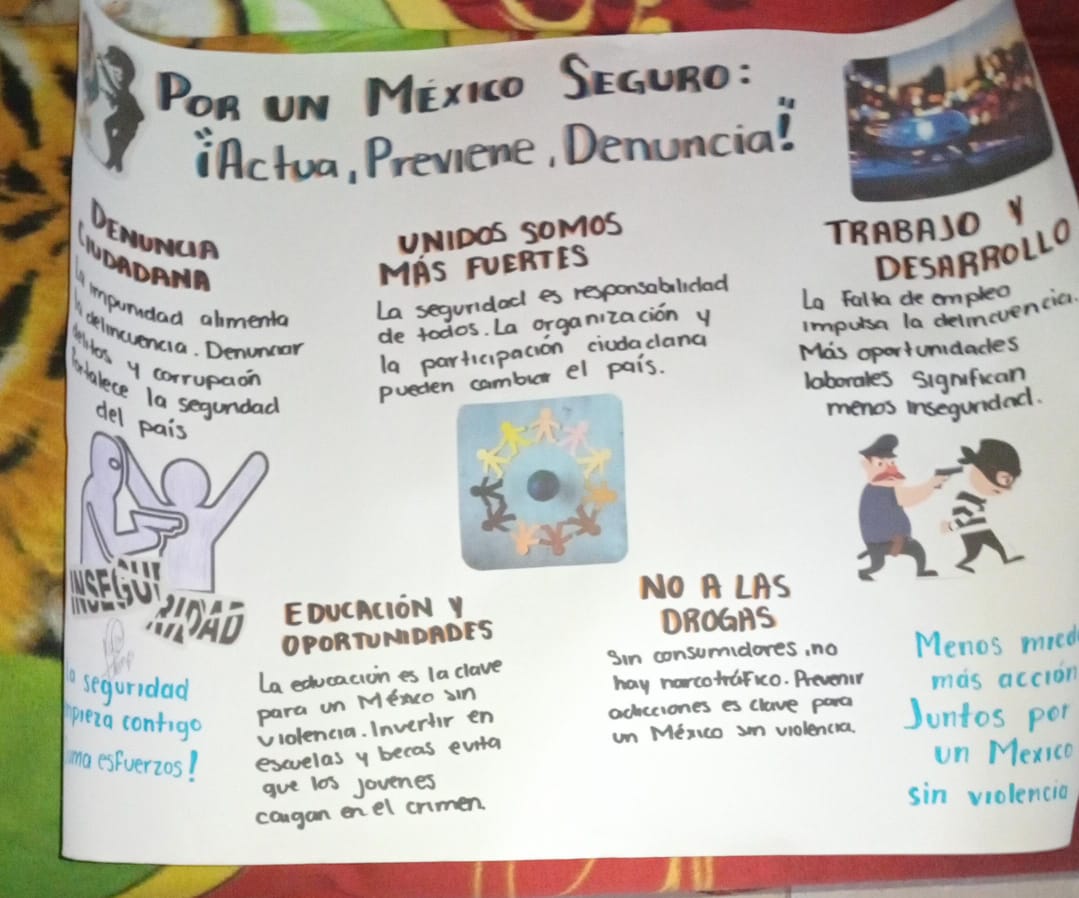 POR UN MÉXICO SEGURO:
"¡Actua, Previene, Denuncia!"
DENUNCIA
CIUDADANA
La impunidad alimenta
la delincuencia. Denunciar
delitos y corrupción
fortalece la seguridad
del país
INSEGURIDAD
UNIDOS SOMOS
MÁS FUERTES
La seguridad es responsabilidad
de todos. La organización y
la participación ciudadana
pueden cambiar el país.
TRABAJO Y
DESARROLLO
La falta de empleo
impulsa la delincuencia.
Más oportunidades
laborales significan
menos inseguridad.
EDUCACIÓN Y
OPORTUNIDADES
La educación es la clave
para un México sin
violencia. Invertir en
escuelas y becas evita
que los jovenes
caigan en el crimen.
NO A LAS
DROGAS
Sin consumidores, no
hay narcotráfico. Prevenir
adicciones es clave para
un México sin violencia.
la seguridad
mpieza contigo
uma esfuerzos!
Menos mied
más acción
Juntos por
un Mexico
sin violencia